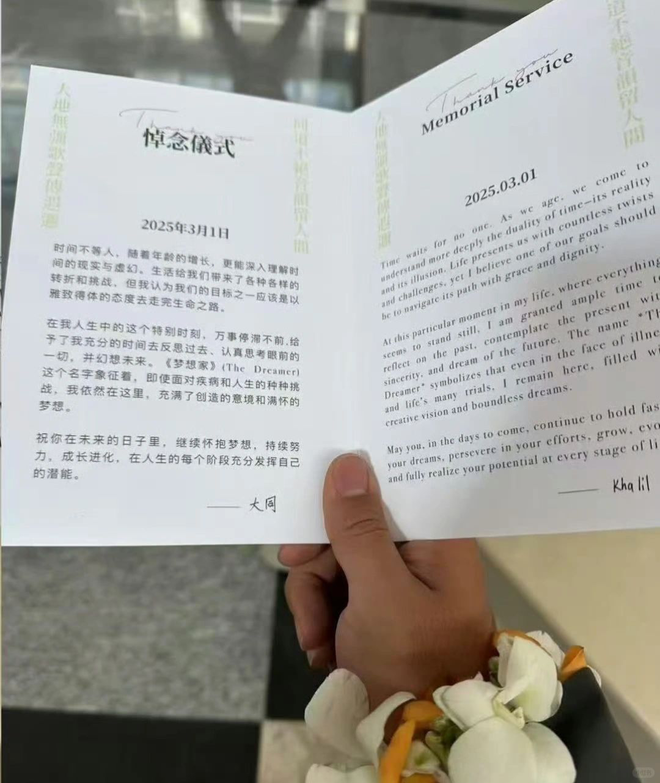 大地無疆歌聲傳遐邇
同道不絕音韻留人間
Thank you
悼念儀式
2025年3月1日
时间不等人，随着年龄的增长，更能深入理解时
间的现实与虚幻。生活给我们带来了各种各样的
转折和挑战，但我认为我们的目标之一应该是以
雅致得体的态度去走完生命之路。
在我人生中的这个特别时刻，万事停滞不前,给
予了我充分的时间去反思过去、认真思考眼前的
一切，并幻想未来。《梦想家》(The Dreamer)
这个名字象征着，即使面对疾病和人生的种种挑
战，我依然在这里，充满了创造的意境和满怀的
梦想。
祝你在未来的日子里，继续怀抱梦想，持续努
力，成长进化，在人生的每个阶段充分发挥自己
的潜能。
—— 大同
大地無疆歌聲傳遐邇
道不絕音韻留人間
Thank you
Memorial Service
2025.03.01
Time waits for no one. As we age, we come to
understand more deeply the duality of time—its reality
and its illusion. Life presents us with countless twists
and challenges, yet I believe one of our goals should
be to navigate its path with grace and dignity.
At this particular moment in my life, where everything
seems to stand still, I am granted ample time to
reflect on the past, contemplate the present with
sincerity, and dream of the future. The name "The
Dreamer" symbolizes that even in the face of illness
and life's many trials, I remain here, filled with
creative vision and boundless dreams.
May you, in the days to come, continue to hold fast
your dreams, persevere in your efforts, grow, evo
and fully realize your potential at every stage of li
—— Khalil